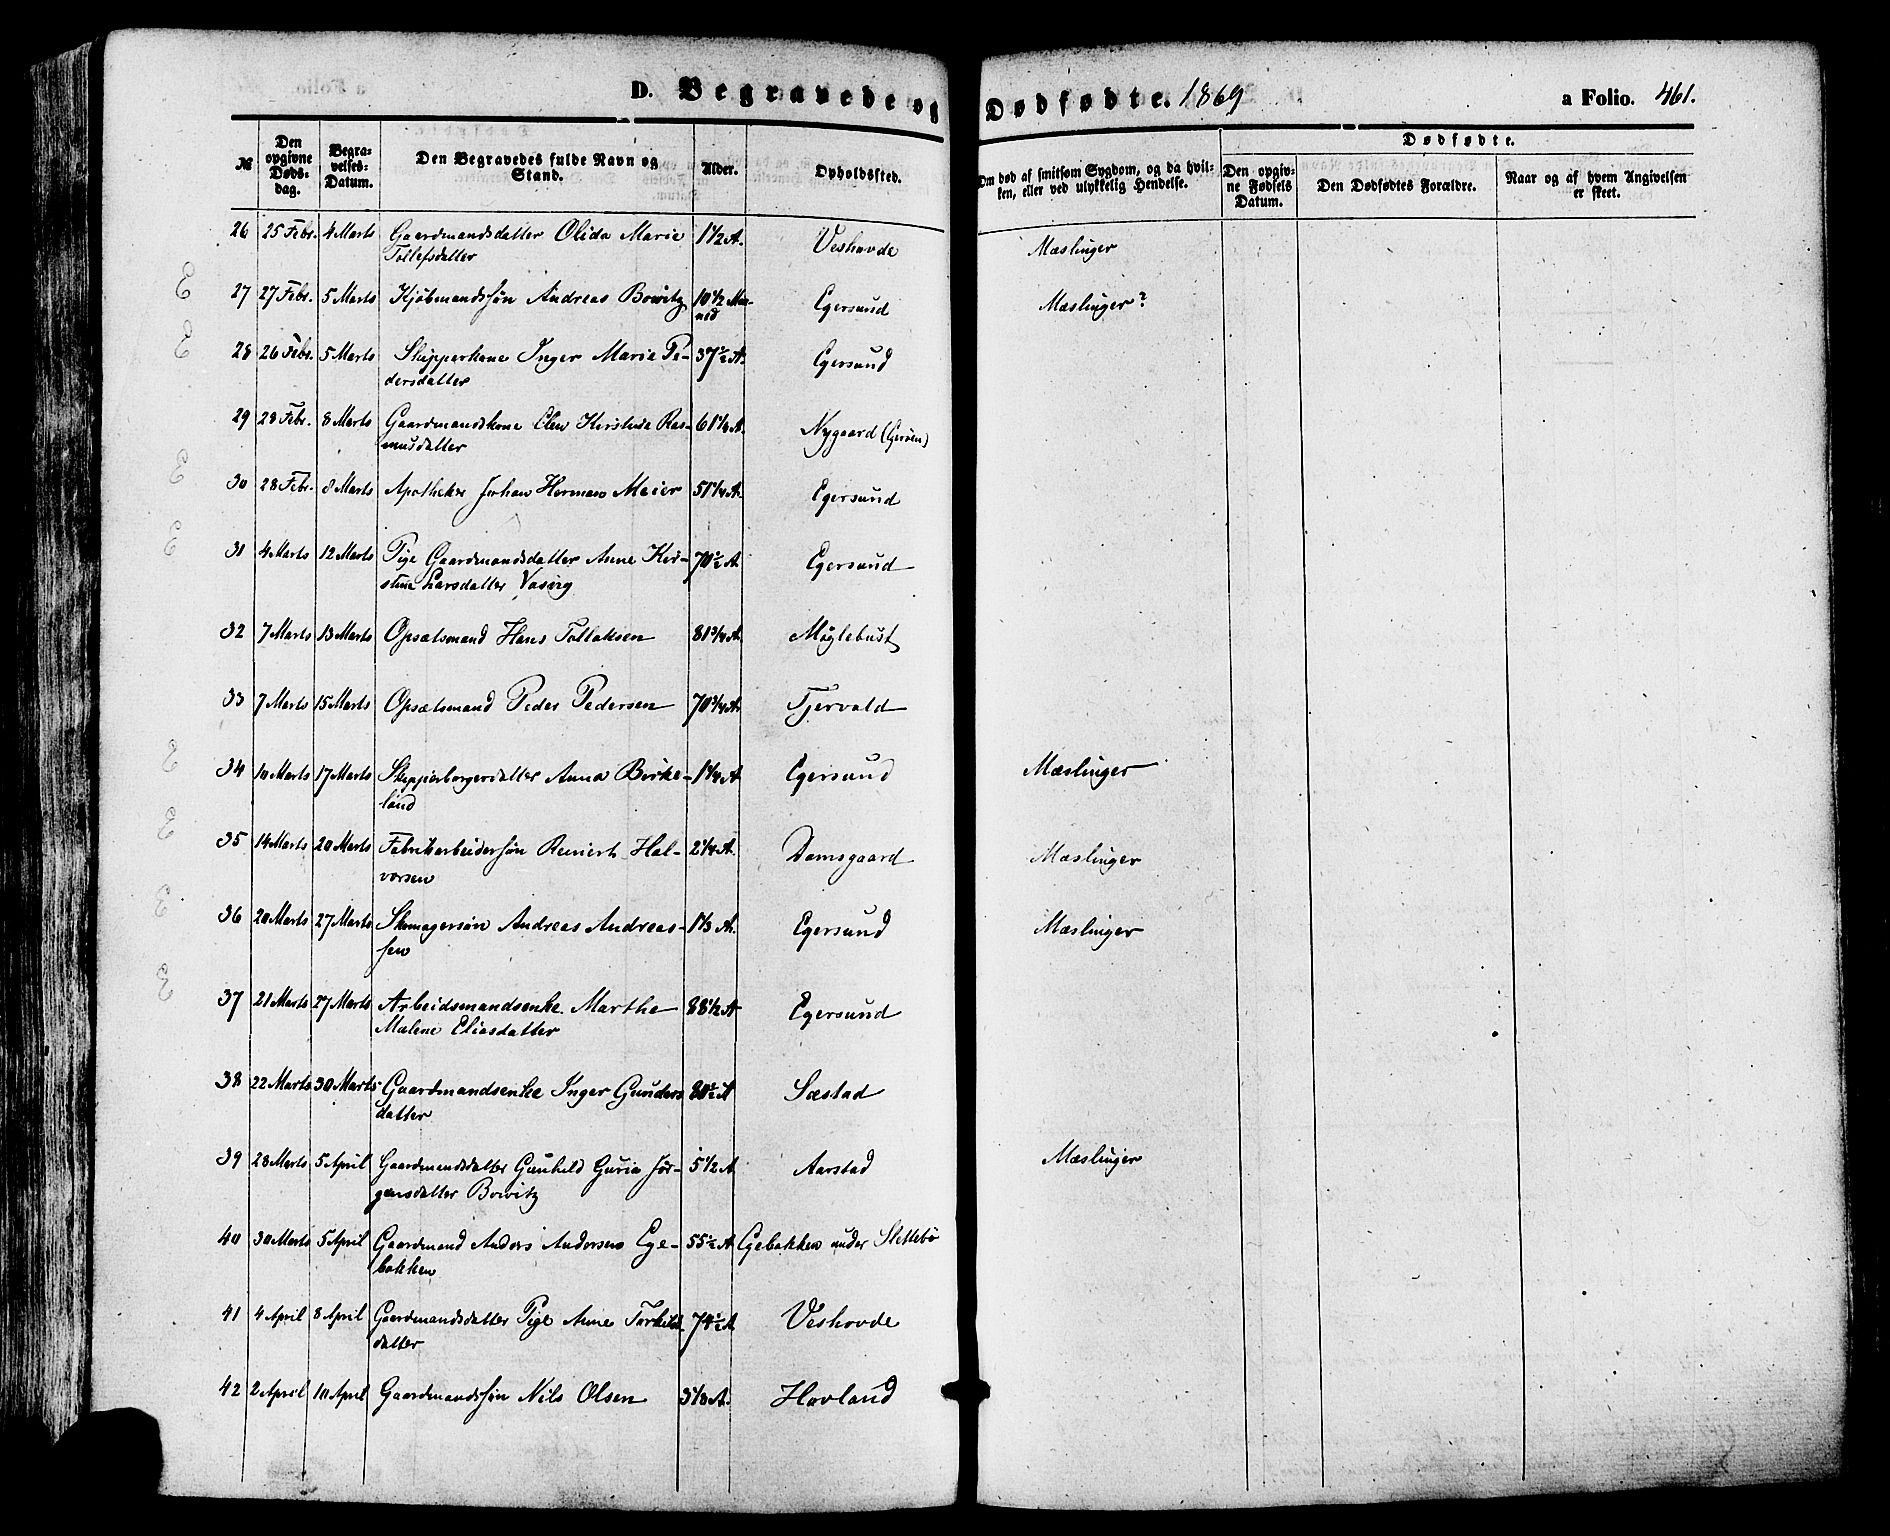 D. Begravede og Dødfødte. 1869 a Folio. 461.
№ Den opgivne Døds-dag. Begra-velses-Datum. Den Begravedes fulde Navn og Stand. Alder. Opholdssted. Om død af smitsom Sygdom, og da hvil-ken, eller ved ulykkelig Hendelse. Dødfødte. Den opgiv-ne Fødsels Datum. Den Dødfødtes Forældre. Naar og af hvem Angivelsen er skeet.
26 25 Febr. 4 Marts Gaardmandsdatter Olida Marie 1 1/2 A. Veshovde Mæslinger
Tollefsdatter
27 27 Febr. 5 Marts Kjøbmandssøn Andreas Bowitz 10 1/2 Maa- Egersund Mæslinger?
ned
28 26 Febr. 5 Marts Skipperkone Inger Marie Pe- 37 1/2 A. Egersund
dersdatter
29 28 Febr. 8 Marts Gaardmandskone Elen Kirstine Ras- 61 1/4 A. Nygaard (Gerøen)
musdatter
30 28 Febr. 8 Marts Apotheker Johan Herman Meier 51 1/4 A. Egersund
31 4 Marts 12 Marts Pige Gaardmandsdatter Anne Kir- 70 1/2 A Egersund
stine Larsdatter Vasvig
32 7 Marts 13 Marts Opsætsmand Hans Tollaksen 81 3/4 A. Møglebust
33 7 Marts 15 Marts Opsætsmand Peder Pedersen 70 3/4 A. Tjervald
34 10 Marts 17 Marts Skipperborgerdatter Anna Birke- 1 1/4 A Egersund Mæslinger
land
35 14 Marts 20 Marts Fabrikarbeidersøn Reinert Hal- 2 1/4 A. Damsgaard Mæslinger
vorsen
36 20 Marts 27 Marts Skomagersøn Andreas Andreas- 1 1/3 A. Egersund Mæslinger
sen
37 21 Marts 27 Marts Arbeidsmandsenke Marthe 88 1/2 A Egersund
Malene Eliasdatter
38 22 Marts 30 Marts Gaardmandsenke Inger Gunders 80 1/2 A Sæstad
datter
39 28 Marts 5 April Gaardmandsdatter Gunhild Guria Jør- 5 1/2 A Aarstad Mæslinger
gensdatter Bowitz
40 30 Marts 5 April Gaardmand Anders Andersen Ege- 55 1/2 A. Egebakken under Slettebø
bakken
41 4 April 8 April Gaardmandsdatter Pige Anne Torkils 74 1/2 A Veshovde
datter
42 2 April 10 April Gaardmandssøn Nils Olsen 3 1/3 A. Hovland